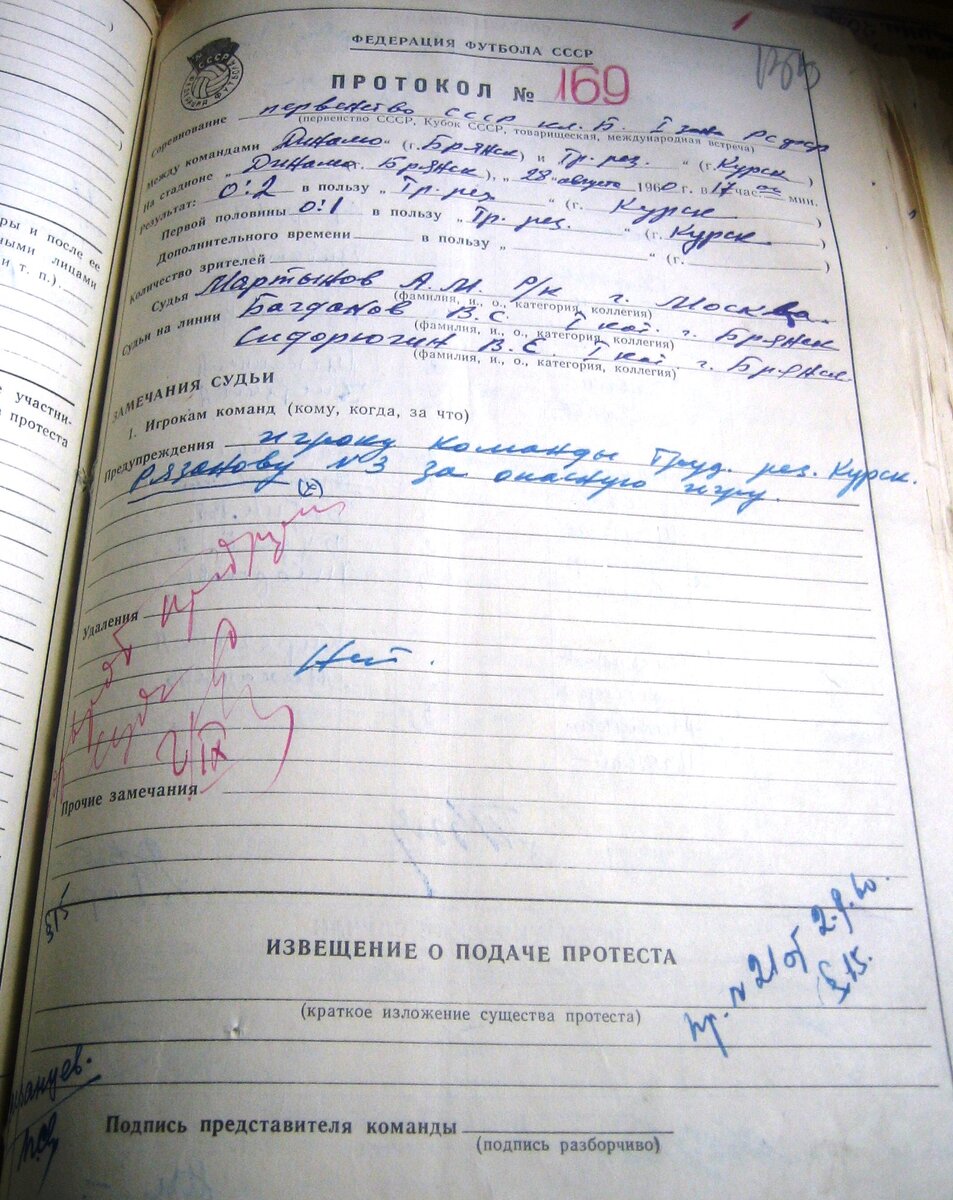 ФЕДЕРАЦИЯ ФУТБОЛА СССР
ПРОТОКОЛ № 169
Соревнование первенство СССР кл. Б. I зона РСФСР
(первенство СССР, Кубок СССР, товарищеская, международная встреча)
Между командами „Динамо“ (г. Брянск) и „Тр. рез.“ (г. Курск)
На стадионе „Динамо“ (г. Брянск), „28“ августа 1960 г. в 17 час. 00 мин.
Результат: 0:2 в пользу „Тр. рез.“ (г. Курск)
Первой половины 0:1 в пользу „Тр. рез.“ (г. Курск)
Дополнительного времени в пользу „ “ (г. )
Количество зрителей
Судья Мартынов А.М. Р/к г. Москва.
(фамилия, и., о., категория, коллегия)
Судьи на линии Багданов В.С. I кат. г. Брянск
(фамилия, и., о., категория, коллегия)
Сидорюгин В.Е. I кат. г. Брянск.
(фамилия, и., о., категория, коллегия)
ЗАМЕЧАНИЯ СУДЬИ
1. Игрокам команд (кому, когда, за что)
Предупреждения игроку команды Труд. рез. Курск.
Рязанову №3 за опасную игру.
Удаления
Нет.
Прочие замечания
§15
ИЗВЕЩЕНИЕ О ПОДАЧЕ ПРОТЕСТА
пр. № 21 от 2.9.60.
§15.
(краткое изложение существа протеста)
Подпись представителя команды
(подпись разборчиво)
ры и после ее
ными лицами
и т. п.).
участни-
протеста